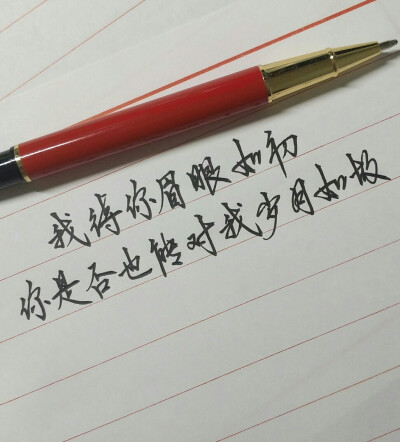 我待你眉眼如初
你是否也能对我岁月如故